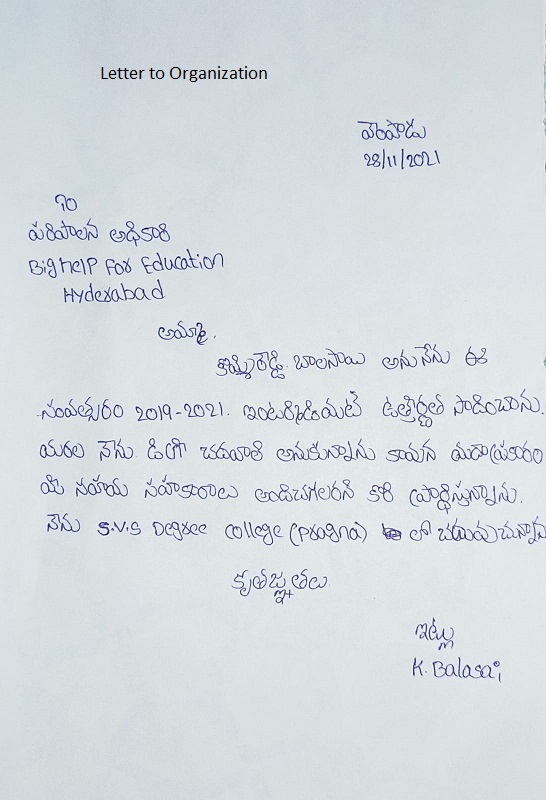 Letter to Organization
వెంపాడు
28/11/2021
To
పరిపాలన అధికారి
Big help For Education
Hyderabad
అమ్మా,
బాలసాయి అను నేను ఈ
సంవత్సరం 2019-2021. ఇంటర్మీడియట్ ఉత్తీర్ణత సాదించాను.
నేను డిగ్రీ చదవాలి అనుకున్నాను కావున
మీ సహాయ సహకారాలు అందిచగలరని కోరి ప్రార్థిస్తున్నాను.
నేను S.V.S Degree College (Pragna) లో చదువుచున్నాను
కృతజ్ఞతలు
ఇట్లు
K. Balasai